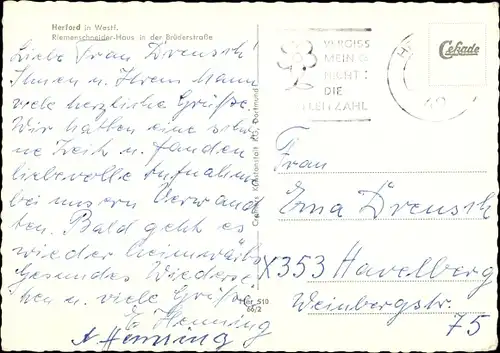 Herford in Westf.
Riemenschneider-Haus in der Brüderstraße
Liebe Frau Dreusch!
Ihnen u. Ihrem Mann
viele herzliche Grüße.
Wir hatten eine schö-
ne Zeit u. fanden
liebevolle Aufnahme
bei unsern Verwand
ten. Bald geht es
wieder heimwärts
Gesundes Wiederse-
hen u. viele Grüße
E. Henning
A Henning
Her 510
66/2
Cekade
VERGISS
MEIN
NICHT
DIE
LEITZAHL
Frau
Erna Dreusch
X353 Havelberg
Weinbergstr.
75